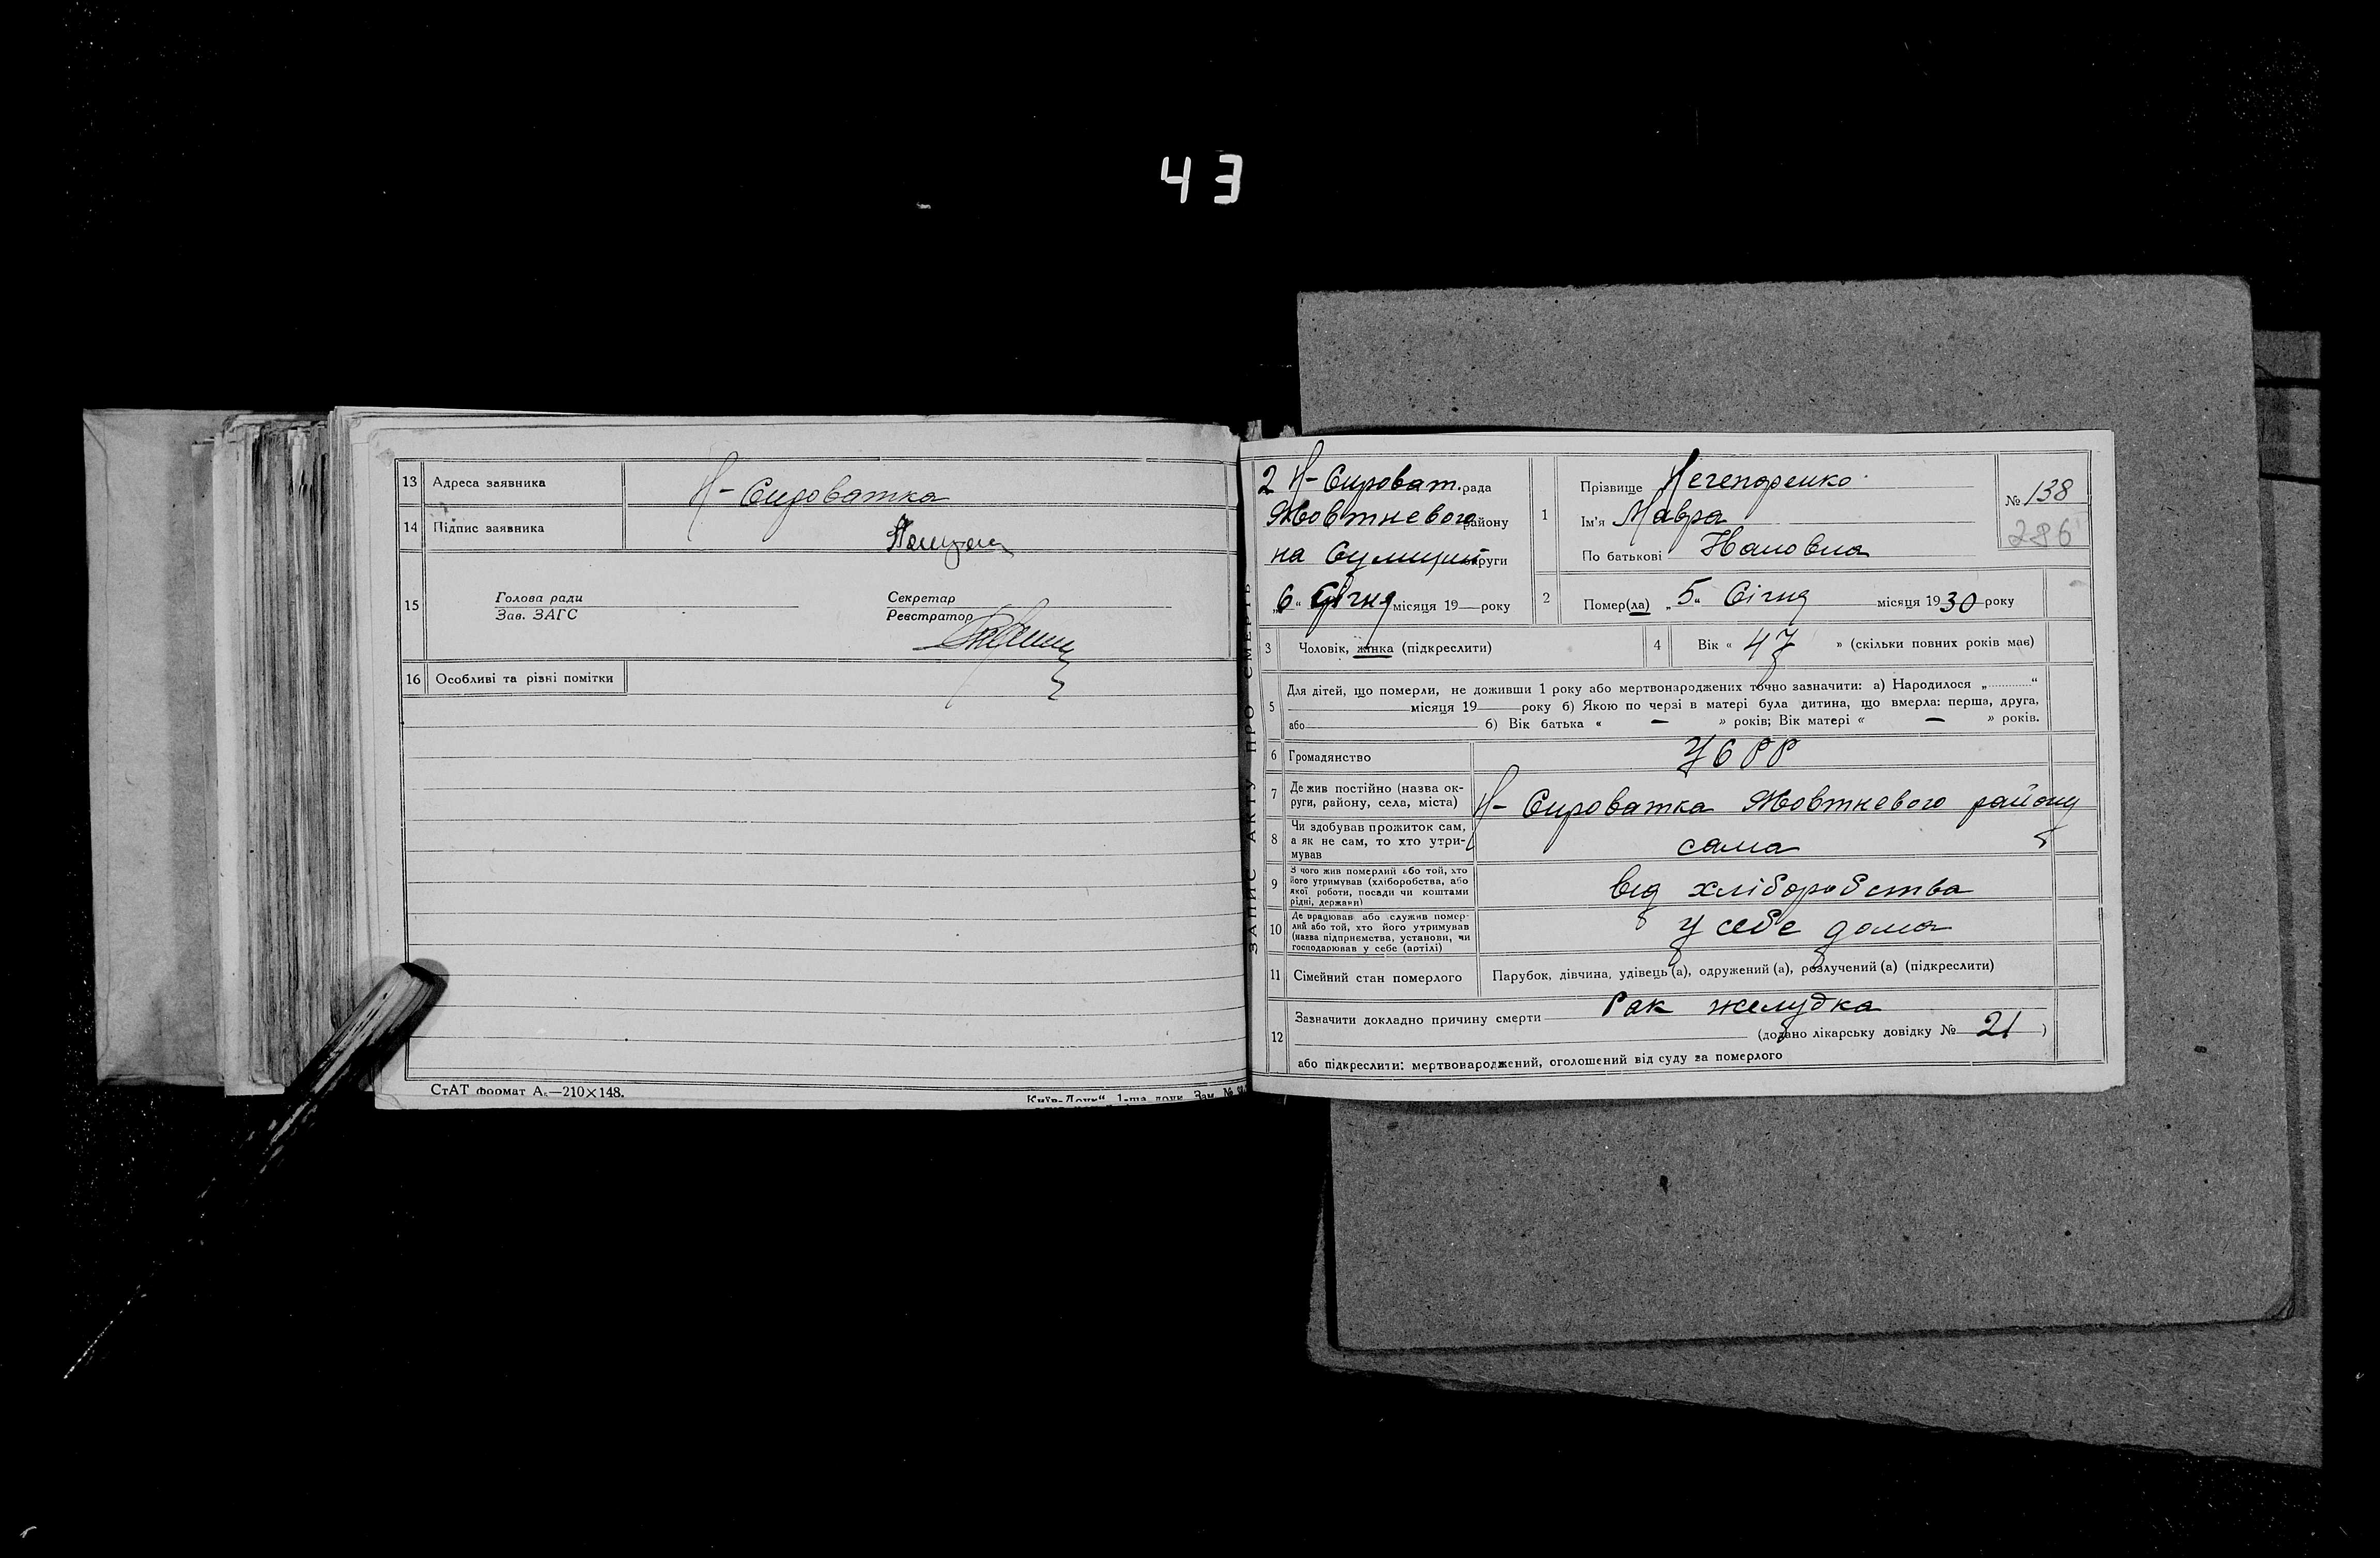 43
13 Адреса заявника Н-Сироватка
14 Підпис заявника
15 Голова ради Секретар
Зав. ЗАГС Реєстратор
16 Особливі та різні помітки
СтАТ формат А₅—210×148.
ЗАПИС АКТУ ПРО СМЕРТЬ
2 Н-Сироват. рада
Жовтневого району
на Сумщині округи
„6“ Січня місяця 19 року
1 Прізвище Нечепоренко
Ім'я Мавра
По батькові
№ 138
286
2 Помер(ла) „5“ Січня місяця 1930 року
3 Чоловік, жінка (підкреслити)
4 Вік « 47 » (скільки повних років має)
5 Для дітей, що померли, не доживши 1 року або мертвонароджених точно зазначити: а) Народилося „ “
місяця 19 року б) Якою по черзі в матері була дитина, що вмерла: перша, друга,
або б) Вік батька « — » років; Вік матері « — » років.
6 Громадянство УСРР
7 Де жив постійно (назва ок-
руги, району, села, міста) Н-Сироватка Жовтневого району
8 Чи здобував прожиток сам,
а як не сам, то хто утри-
мував сама
9 З чого жив померлий або той, хто
його утримував (хліборобства, або
якої роботи, посади чи коштами
рідні, держави) від хліборобства
10 Де працював або служив помер-
лий або той, хто його утримував
(назва підприємства, установи, чи
господарював у себе (артілі) у себе дома
11 Сімейний стан померлого Парубок, дівчина, удівець (а), одружений (а), розлучений (а) (підкреслити)
12 Зазначити докладно причину смерти Рак желудка
(додано лікарську довідку № 21 )
або підкреслити: мертвонароджений, оголошений від суду за померлого